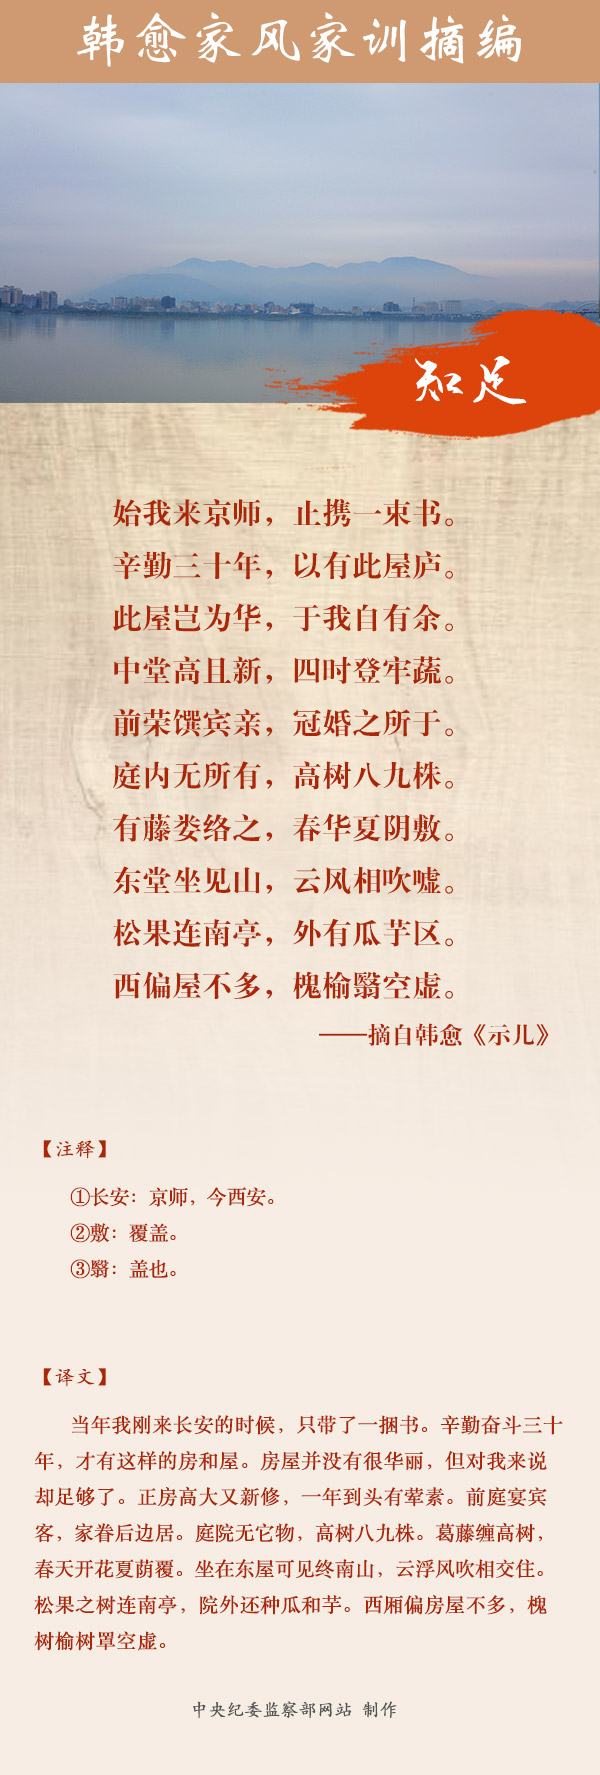 韩愈家风家训摘编
知足
始我来京师，止携一束书。
辛勤三十年，以有此屋庐。
此屋岂为华，于我自有余。
中堂高且新，四时登牢蔬。
前荣馔宾亲，冠婚之所于。
庭内无所有，高树八九株。
有藤娄络之，春华夏阴敷。
东堂坐见山，云风相吹嘘。
松果连南亭，外有瓜芋区。
西偏屋不多，槐榆翳空虚。
——摘自韩愈《示儿》
【注释】
①长安：京师，今西安。
②敷：覆盖。
③翳：盖也。
【译文】
当年我刚来长安的时候，只带了一捆书。辛勤奋斗三十
年，才有这样的房和屋。房屋并没有很华丽，但对我来说
却足够了。正房高大又新修，一年到头有荤素。前庭宴宾
客，家眷后边居。庭院无它物，高树八九株。葛藤缠高树，
春天开花夏荫覆。坐在东屋可见终南山，云浮风吹相交住。
松果之树连南亭，院外还种瓜和芋。西厢偏房屋不多，槐
树榆树罩空虚。
中央纪委监察部网站 制作